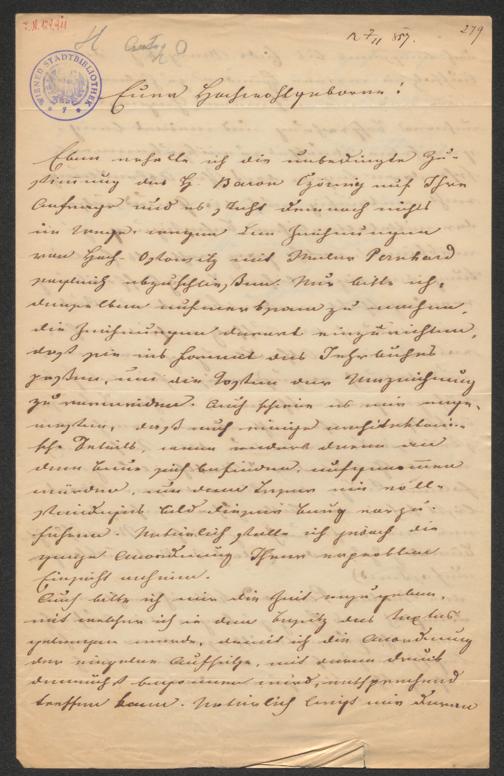 279
12/11 857.
WIENER STADTBIBLIOTHEK
Euer Hochwohlgeborne!
Eben erhalte ich die unbedingte Zu-
stimmung des H. Baron Czörnig auf Ihre
Anfrage und es steht demnach nichts
im Wege wegen den Zeichnungen
von Hoch Osterwitz mit Maler Pernhard
sogleich abzuschließen. Nur bitte ich,
denselben aufmerksam zu machen,
die Zeichnungen derart einzurichten,
daß sie ins Format des Jahrbuches
passen, um die Kosten der Umzeichnung
zu vermeiden. Auch schiene es mir ange-
messen, daß auch einige architektoni-
sche Details, wenn anders deren an
dem Baue sich befinden, aufgenommen
würden, um dem Leser ein voll-
ständiges Bild dieser Burg vorzu-
führen. Natürlich stelle ich jedoch die
ganze Anordnung Ihrer erprobten
Einsicht anheim.
Auch bitte ich mir die Zeit anzugeben,
mit welcher ich in den Besitz des Textes
gelangen werde, damit ich die Anordnung
der einzelnen Aufsätze, mit deren Druck
demnächst begonnen wird, entsprechend
treffen kann. Natürlich liegt mir daran